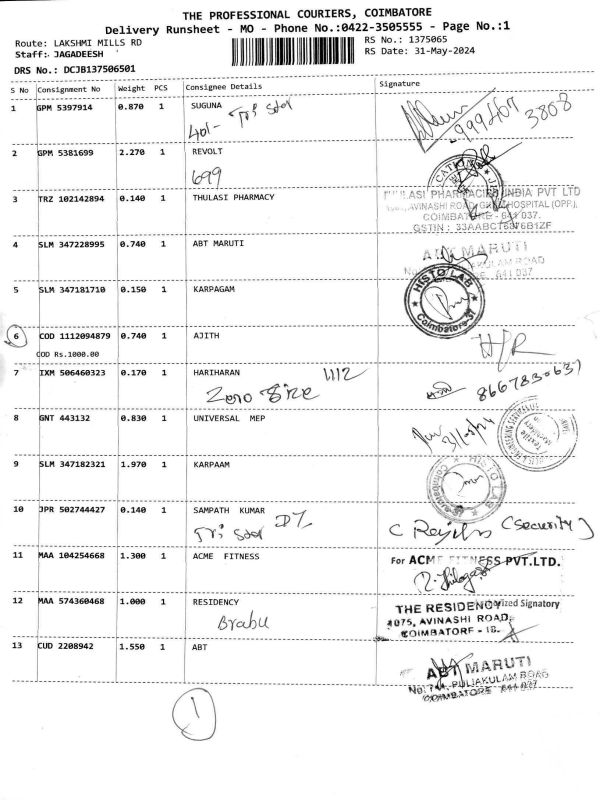 THE PROFESSIONAL COURIERS, COIMBATORE
Delivery Runsheet - MO - Phone No.:0422-3505555 - Page No.:1
Route: LAKSHMI MILLS RD
RS No.: 1375065
Staff: JAGADEESH
RS Date: 31-May-2024
DRS No.: DCJB137506501
S No Consignment No Weight PCS Consignee Details Signature
1 GPM 5397914 0.870 1 SUGUNA
3808
2 GPM 5381699 2.270 1 REVOLT
699
3 TRZ 102142894 0.140 1 THULASI PHARMACY
PHARMACIES INDIA PVT LTD
AVINASHI ROAD, HOSPITAL (OPP.),
COIMBATORE - 641 037.
GSTIN : 33AABCT
4 SLM 347228995 0.740 1 ABT MARUTI
ABT MARUTI
PULIAKULAM ROAD
641 037
5 SLM 347181710 0.150 1 KARPAGAM
HISTO LAB
Coimbatore-37
6 COD 1112094879 0.740 1 AJITH
COD Rs.1000.00
7 IXM 506460323 0.170 1 HARIHARAN 1112
Zero Size
8 GNT 443132 0.830 1 UNIVERSAL MEP
31/05/24
9 SLM 347182321 1.970 1 KARPAAM
HISTO LAB
10 JPR 502744427 0.140 1 SAMPATH KUMAR
(Security)
11 MAA 104254668 1.300 1 ACME FITNESS
For ACME FITNESS PVT.LTD.
Authorized Signatory
12 MAA 574360468 1.000 1 RESIDENCY
Brabu
THE RESIDENCY
1075, AVINASHI ROAD,
COIMBATORE - 18.
13 CUD 2208942 1.550 1 ABT
ABT MARUTI
No: 744, PULIAKULAM ROAD
COIMBATORE 641 037
1